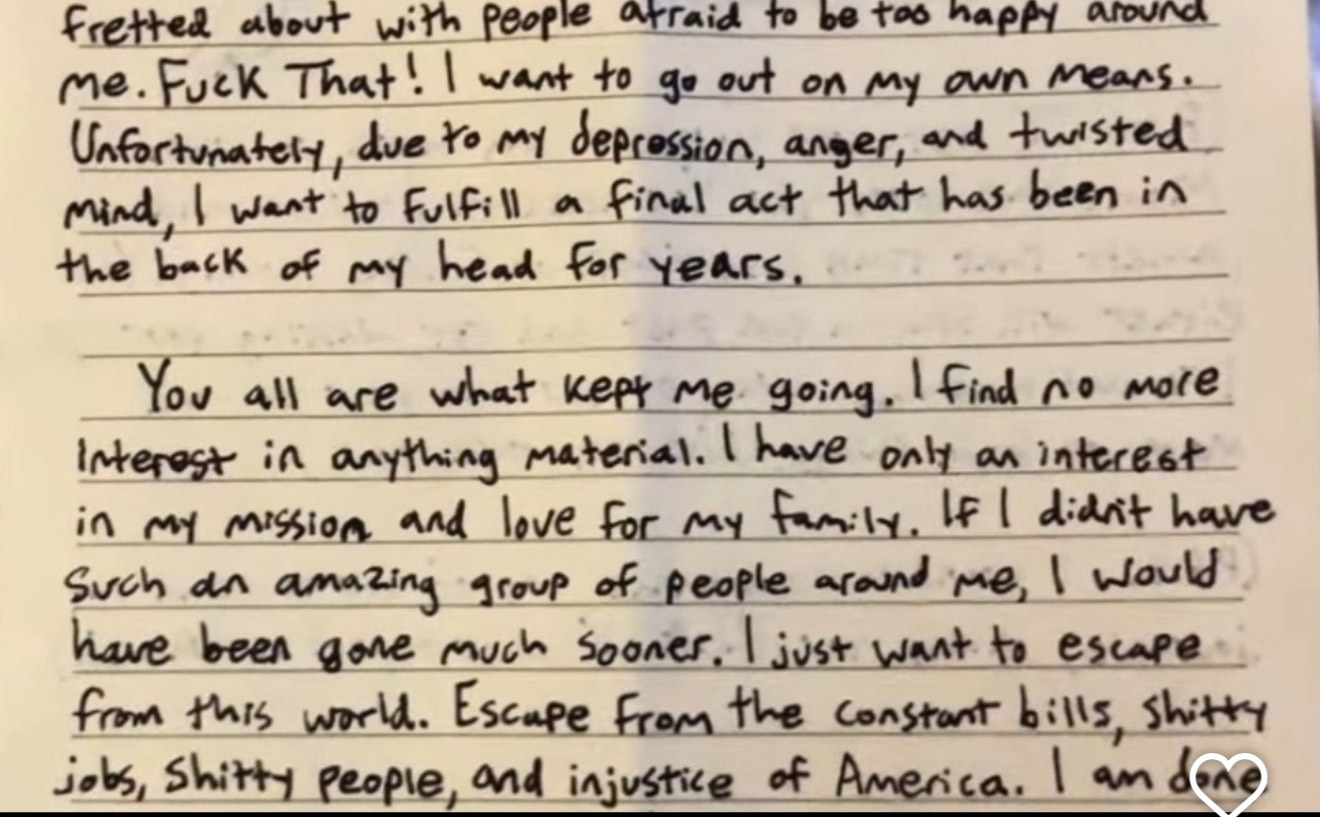 fretted about with people afraid to be too happy around
me. Fuck That! I want to go out on my own means.
Unfortunately, due to my depression, anger, and twisted
mind, I want to fulfill a final act that has been in
the back of my head for years.
You all are what kept me going. I find no more
interest in anything material. I have only an interest
in my mission and love for my family. If I didn't have
such an amazing group of people around me, I would
have been gone much sooner. I just want to escape
from this world. Escape from the constant bills, shitty
jobs, shitty people, and injustice of America. I am done